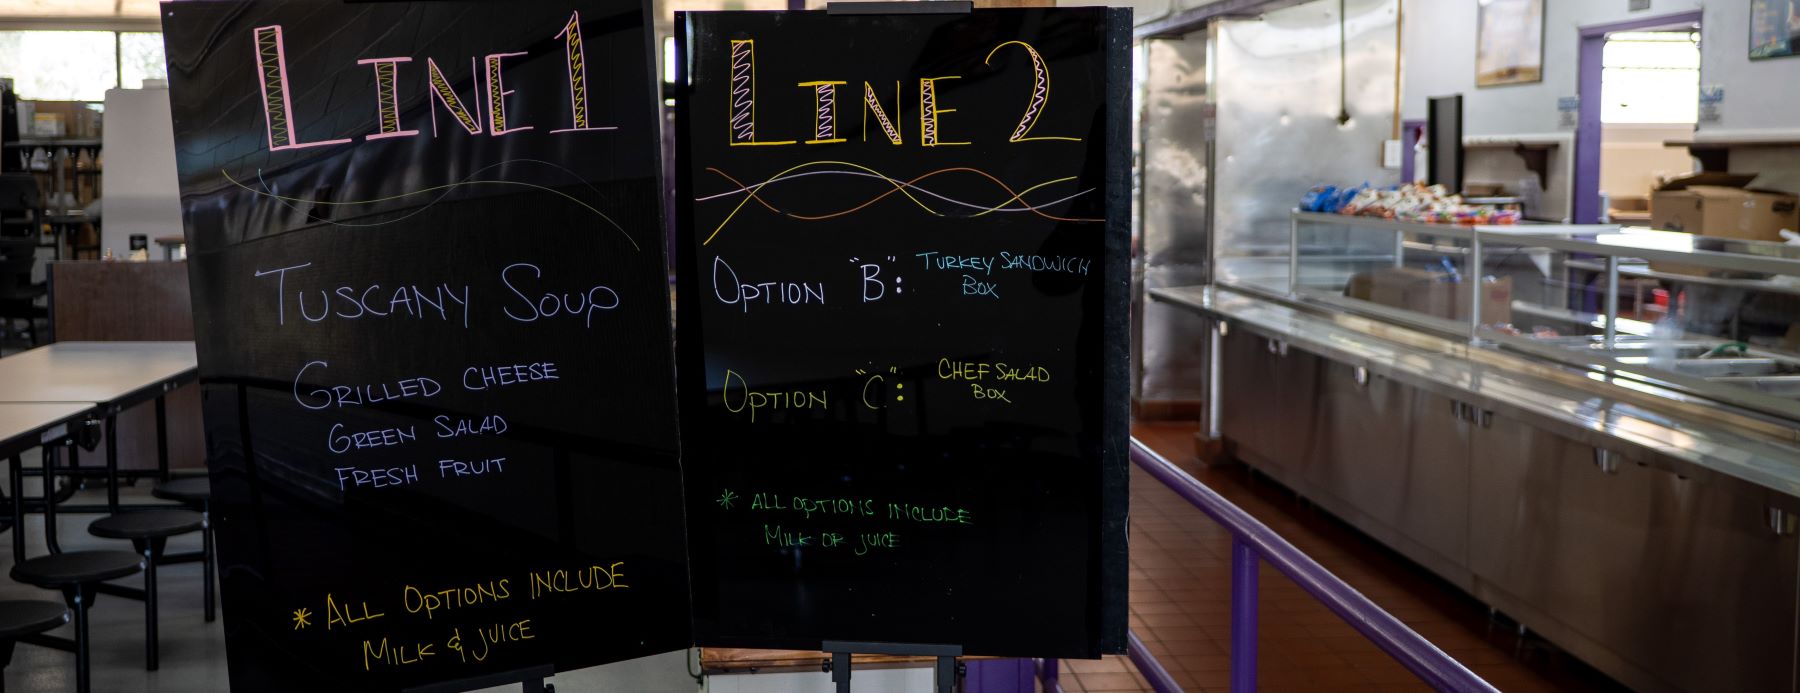 LINE 1
TUSCANY SOUP
GRILLED CHEESE
GREEN SALAD
FRESH FRUIT
* ALL OPTIONS INCLUDE
MILK & JUICE
LINE 2
OPTION "B": TURKEY SANDWICH
BOX
OPTION "C": CHEF SALAD
BOX
* ALL OPTIONS INCLUDE
MILK OR JUICE